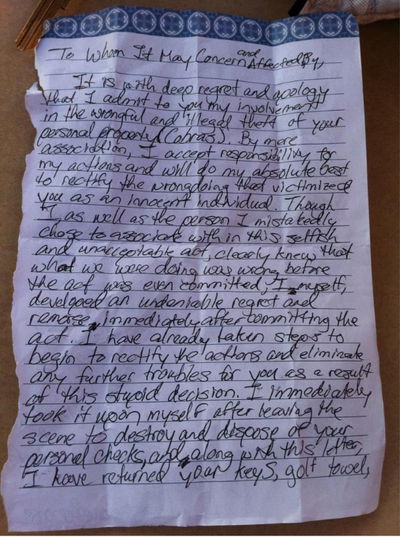 To Whom It May Concern and Affected By,
It is with deep regret and apology
that I admit to you my involvement
in the wrongful and illegal theft of your
personal property (Cobras). By mere
association, I accept responsibility for
my actions and will do my absolute best
to rectify the wrongdoing that victimized
you as an innocent individual. Though
I, as well as the person I mistakedly
chose to associate with in this selfish
and unacceptable act, clearly knew that
what we were doing was wrong before
the act was even committed, I myself,
developed an undeniable regret and
remorse immediately after committing the
act. I have already taken steps to
begin to rectify the actions and eliminate
any further troubles for you as a result
of this stupid decision. I immediately
took it upon myself after leaving the
scene to destroy and dispose of your
personal checks, and along with this letter,
I have returned your keys, golf towel,